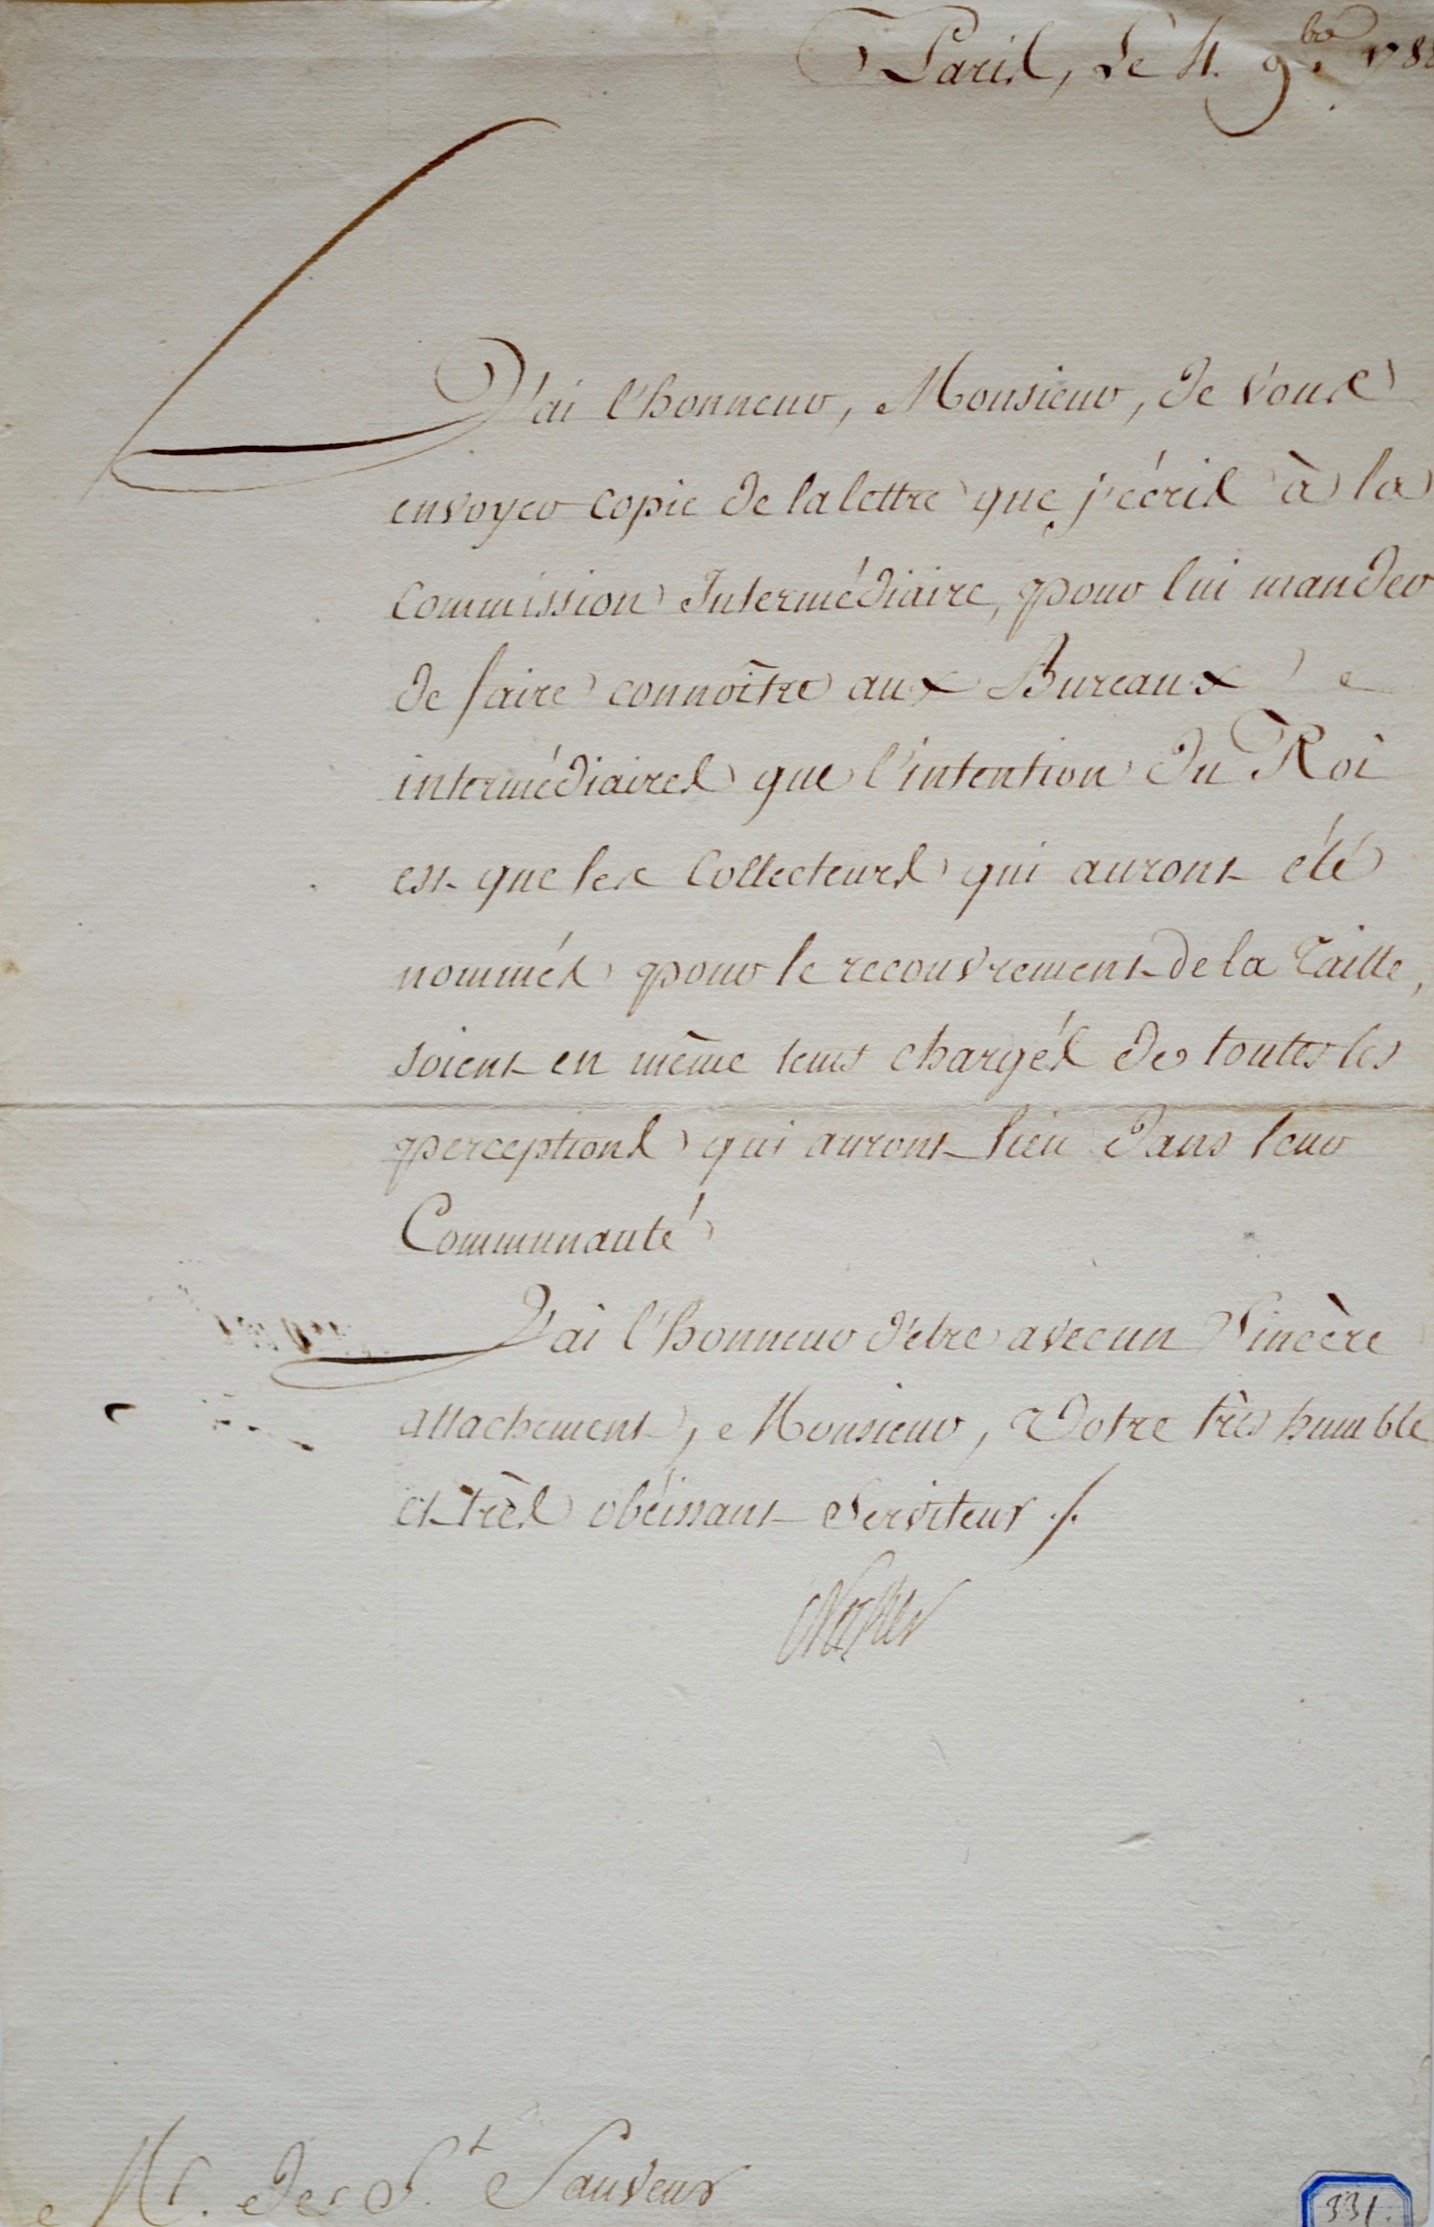 Paris, Le 4. 9.bre 178
J'ai l'honneur, Monsieur, de vous
envoyer copie de la lettre que j'écris à la
Commission Intermédiaire, pour lui mander
de faire connoître aux Bureaux
intermédiaires que l'intention du Roi
est que les Collecteurs qui auront été
nommés pour le recouvrement de la Taille,
soient en même tems chargés de toutes les
perceptions qui auront lieu dans leur
Communauté
J'ai l'honneur d'etre avec un Sincère
attachement, Monsieur, Votre très humble
et très obéissant Serviteur ./.
Necker
Mr. De St. Sauveur
331.